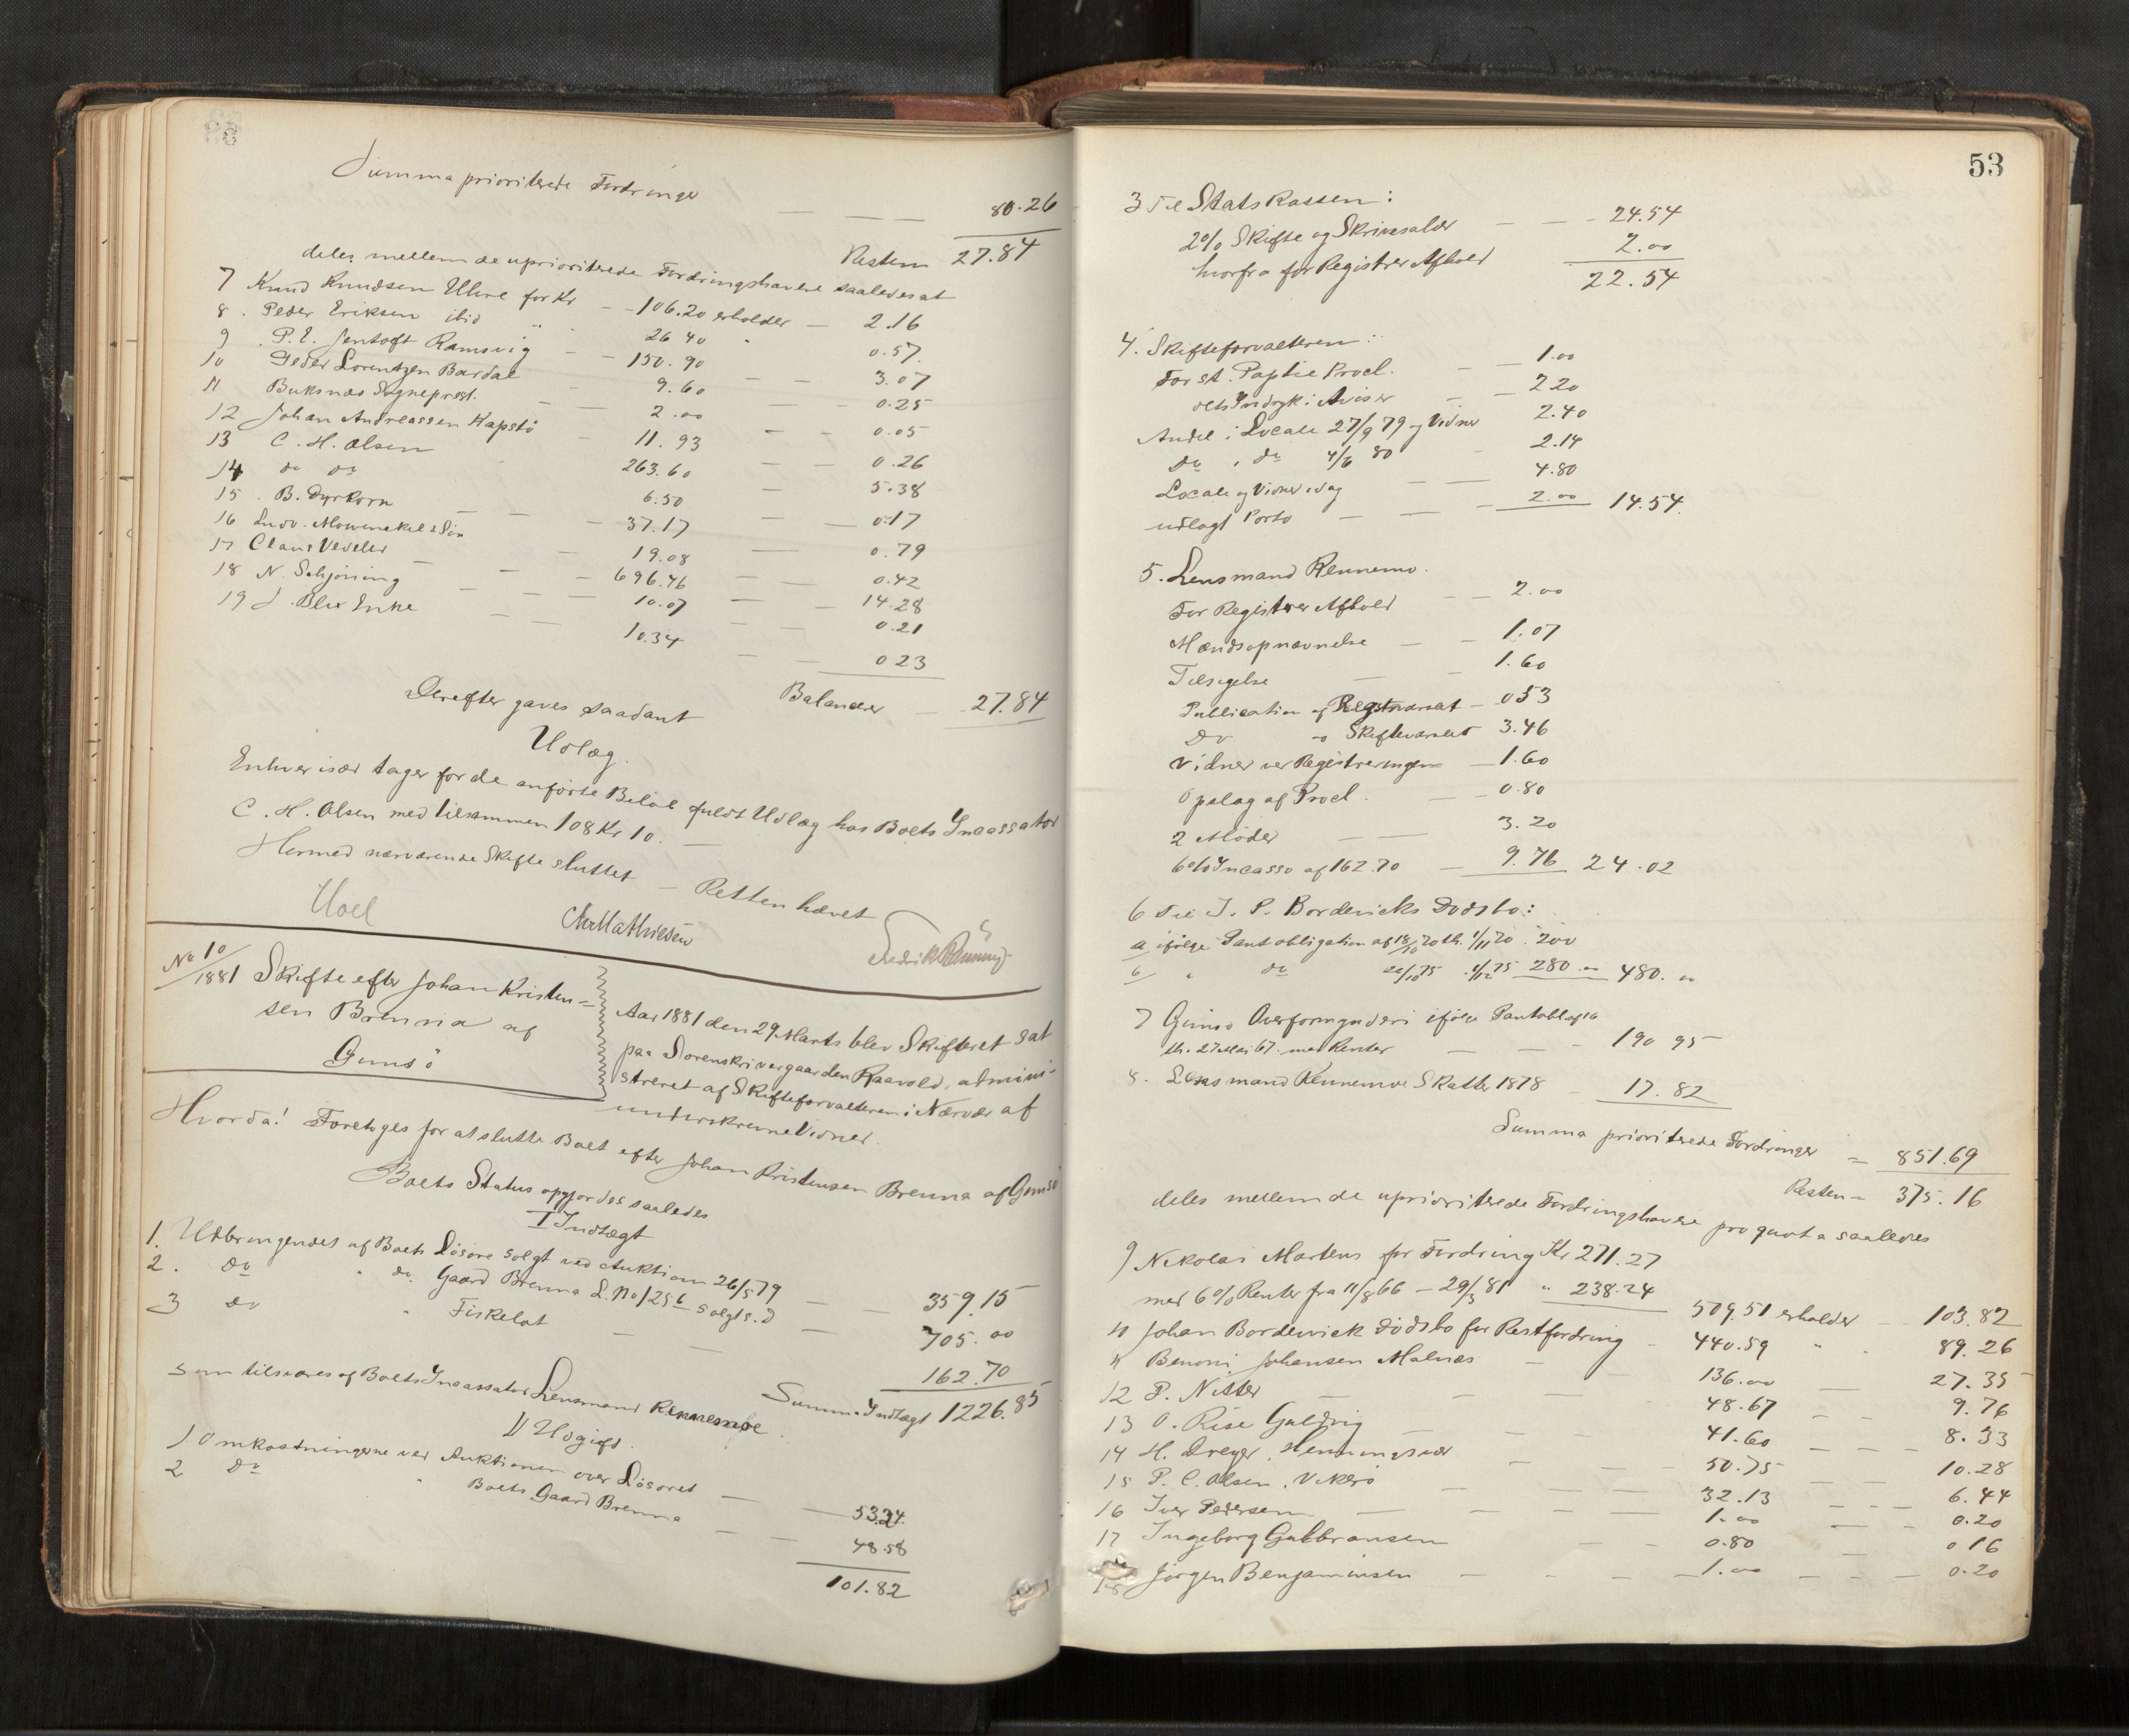 Summa prioriterede Fordringer — — — 80.26
Resten 27.84
deles mellem de uprioriterede Fordringshavere saaledes at
7 Knud Knudsen Uhre for Kr — 106.20 erholder — 2.16
8. Peder Eriksen ibid " 26 40 " 0.57.
9. P. E. Jentoft Ramsvig — 150.90 — — 3.07
10 Peder Lorentzen Bardal — 9.60 — 0.25
11 Buksnæs Sogneprest. — — 2.00 — — 0.05
12 Johan Andreassen Kapstø — 11.93 — — 0.26
13 C. H. Olsen 263.60 — 5.38
14 do do 6.50 — 0.17
15. B. Dyrkorn — — — 37.17 — 0.79
16 Ludv. Mowinckel & Søn — 19.08 — — 0.42
17 Claus Vedeler — — 696.76 — — 14.28
18 N. Schjøning — — — 10.07 — — 0.21
19 J. Blix Enke — — 10.34 — — 0 23
Balancerer — 27.84
Derefter gaves saadant
Udlæg.
Enhver især tager for de anførte Beløb fuldt Udlæg hos Boets Incassator
C. H. Olsen med tilsammen 108 Kr 10. —
Hermed nærværende Skifte sluttet — Retten hævet
Hoel
Chr Mathiesen
No 10/1881 Skifte efter Johan Kristen-
sen Brenna af
Gimsø
Aar 1881 den 29 Marts blev Skifteret sat
paa Sorenskrivergaarden Raavold, admini-
streret af Skifteforvalteren i Nærvær af
underskrevne Vidner.
Hvorda! Foretoges for at slutte Boet efter Johan Kristensen Brenna af Gimsø
Boets Status opgjordes saaledes
I Indtægt
1. Udbringendet af Boets Løsøre solgt ved Auktion 26/5 79 — — 359.15
2. do " do. Gaard Brenna L. No 125 b solgt s. D — 705.00
3 do " Fiskelot — — 162.70
Summa Indtægt 1226.85
som tilsvares af Boets Incassator Lensmand Rennemoe.
II Udgift.
1 Omkostningerne ved Auktionen over Løsøret — — 53.24.
2 do " Boets Gaard Brenna — — 48.58
101.82
53
3 Til Statskassen:
2% Skifte og Skrivesalær — — - 24.54
hvorfra for Registrer Afhold 2.00
22.54
4. Skifteforvalteren:
For st. Paptie Procl. — — 1.00
dets Indryk i Aviser — — 2 20
Andel i Locale 27/9 79 og Vidner 2.40
Do, do 4/6 80 - 2.14
Locale og Vidner idag — — 4.80
udlagt Porto — — — - 2.00 14.54.
5. Lensmand Rennemo.
For Registrer Afhold — — 2.00
Mændsopnævnelse — — 1.07
Tilsigelse — - 1.60
Publication af Registrværslet — 0 53
Do " Skifteværslet 3.46
Vidner ved Registreringen — 1.60
Opslag af Procl. — - 0.80
2 Møder — — 3.20
6% Incasso af 162.70 — 9.76 24.02
6 Til J. P. Bordevicks Dødsbo:
a ifølge Pantobligation af 18/10 70 th. 1/11 70. 200
b " do 20/10 75 . 1/12 75 280.00 480.00
7 Gimsø Overformynderi ifølge Pantobl af 16
th. 27 Mai 67. med Renter — — - 190 95
8. Lensmand Rennemoe Skatter 1878 — 17.82
Summa prioriterede Fordringer — 851.69
Resten — 375.16
deles mellem de uprioriterede Fordringshavere pro quota saaledes
9 Nikolai Martens for Fordring Kr 271.27
med 6% Renter fra 11/8 66 — 29/3 81 " 238.24
509.51 erholder — 103.82
10 Johan Bordewick Dødsbo for Restfordring - 440.59 " " 89.26
11 Benoni Johansen Malnæs — - 136.00 — 27.35
12 P. Nitter — — — — 48.67 — - 9.76
13 O. Rise Guldvig — — — 41.60 — — - 8.33
14 H. Dreyer, Henningsvær — - — 50.75 — — 10.28
15 P. C. Olsen, Vikerø — — — 32.13 — - — 6.44
16 Iver Pedersen — — — — 1.00 — — - 0.20
17 Ingeborg Gulbransen — - 0.80 — 0 16
18 Jørgen Benjaminsen — — - - — 1.00 — — — 0.20